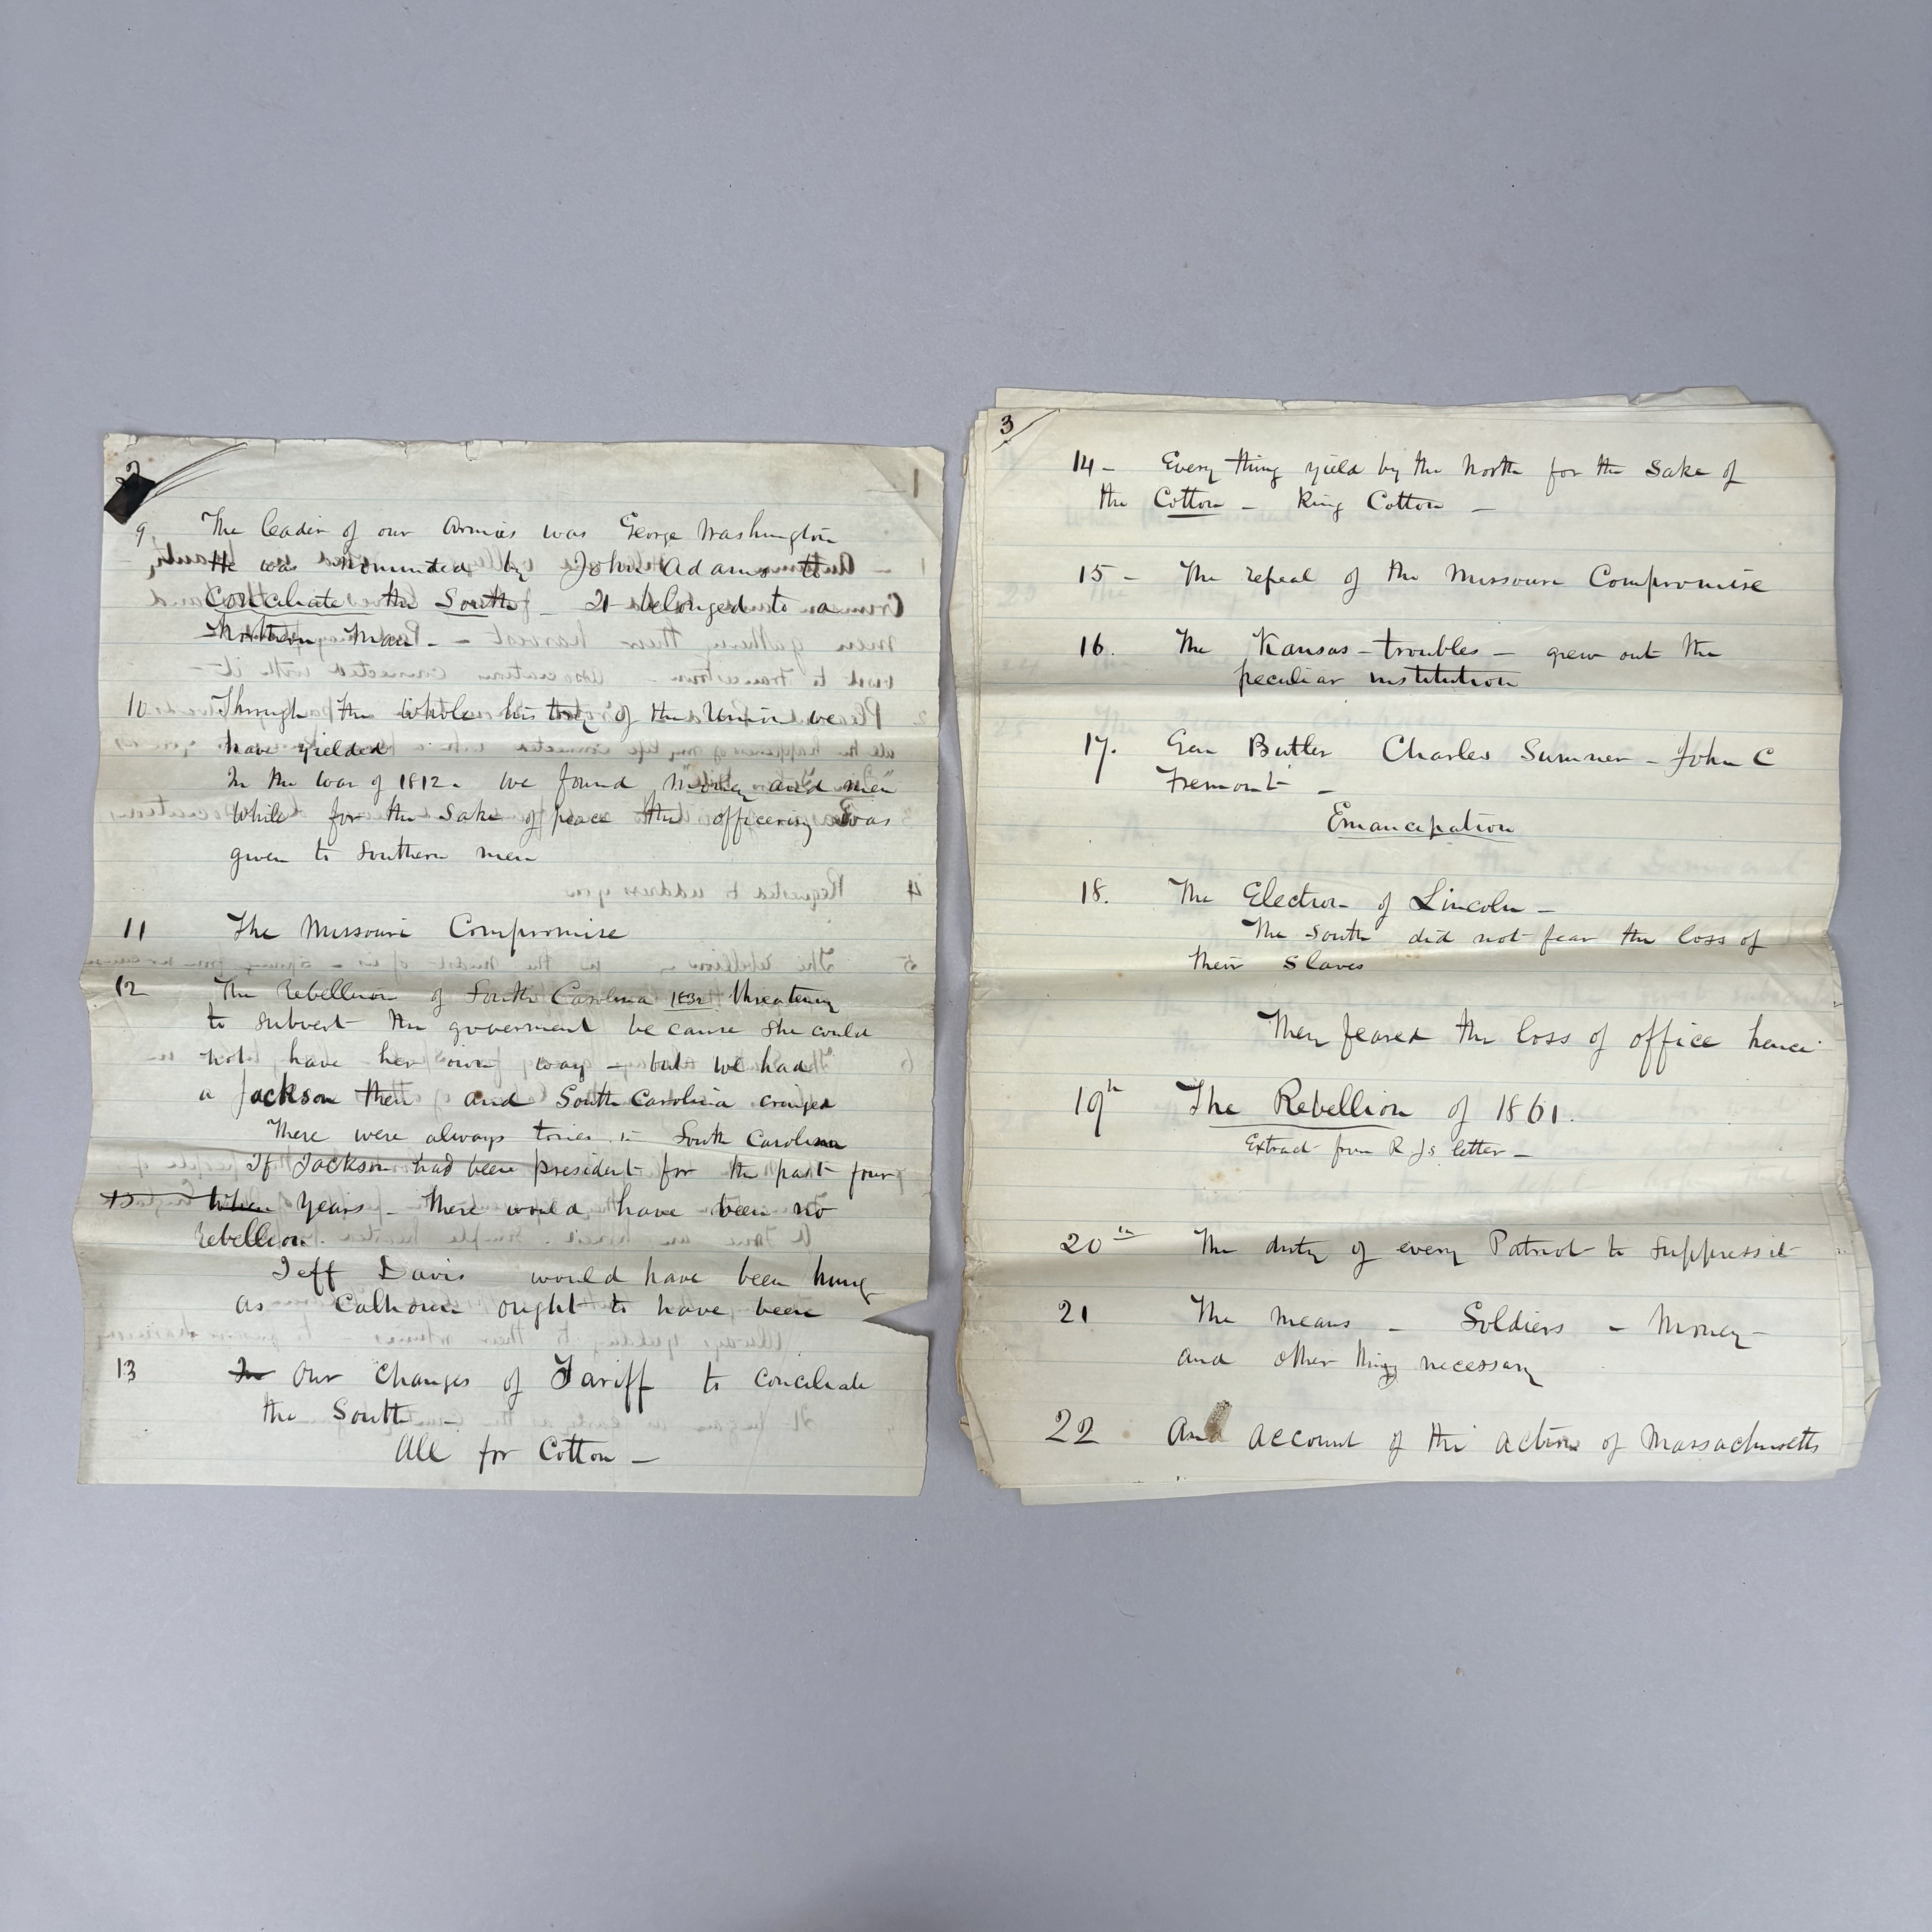 2
9 The leader of our Armies was George Washington
He was nominated by John Adams to
Conciliate the South - It belonged to a
Northern Man -
10 Through the whole history of the Union we
have yielded
In the War of 1812 - we found "money and men"
while for the sake of peace the officering was
given to Southern men
11 The Missouri Compromise
12 The Rebellion of South Carolina 1832 threatening
to subvert the goverment because she could
not have her own way - but we had
a Jackson then and South Carolina cringed
There were always tories in South Carolina
If Jackson had been president for the past four
13 When years - there would have been no
rebellion.
Jeff Davis would have been hung
as Calhoun ought to have been
13 In Our changes of Tariff to conciliate
the South -
All for Cotton -
3
14 - Every thing yield by the North for the sake of
the Cotton - King Cotton -
15 - The repeal of the Missouri Compromise
16. The Kansas - troubles - grew out the
peculiar institution
17. Gen Butler Charles Sumner - John C
Fremont -
Emancipation
18. The Election of Lincoln -
The South did not fear the loss of
their slaves
They feared the loss of office hence
19th The Rebellion of 1861.
Extract from R Js letter -
20th The duty of every Patriot to suppress it
21 The means - Soldiers - Money -
and other things necessary
22 And account of the action of Massachusetts